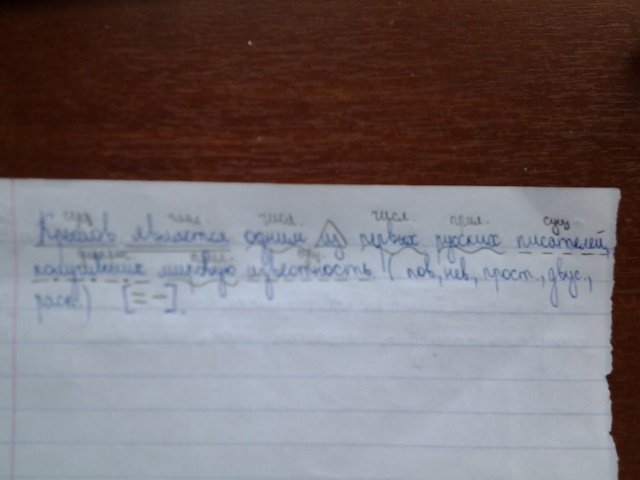 сущ. числ. числ. прил. сущ.
Крылов является одним из первых русских писателей,
получивших мировую известность. (пов, нев, прост., двус.,
расп.) [= -].